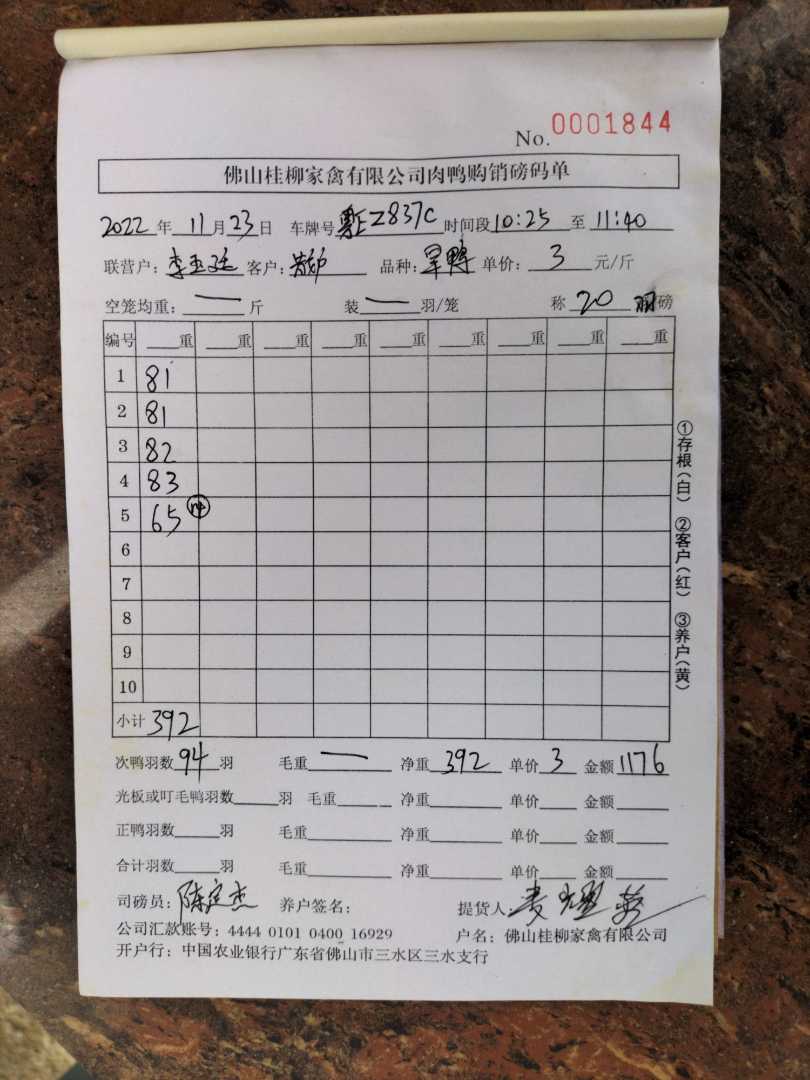 No. 0001844
佛山桂柳家禽有限公司肉鸭购销磅码单
2022年 11月23日 车牌号 粤EZ837C 时间段 10:25 至 11:40
联营户: 李 客户: 品种: 旱鸭 单价: 3 元/斤
空笼均重: — 斤 装 — 羽/笼 称 20 羽磅
编号 重 重 重 重 重 重 重 重 重
1 81
2 81
3 82
4 83
5 65 14
6
7
8
9
10
小计 392
次鸭羽数 94 羽 毛重 — 净重 392 单价 3 金额 1176
光板或叮毛鸭羽数 羽 毛重 净重 单价 金额
正鸭羽数 羽 毛重 净重 单价 金额
合计羽数 羽 毛重 净重 单价 金额
司磅员: 陈定杰 养户签名: 提货人 麦
公司汇款账号: 4444 0101 0400 16929 户名: 佛山桂柳家禽有限公司
开户行: 中国农业银行广东省佛山市三水区三水支行
①存根(白) ②客户(红) ③养户(黄)